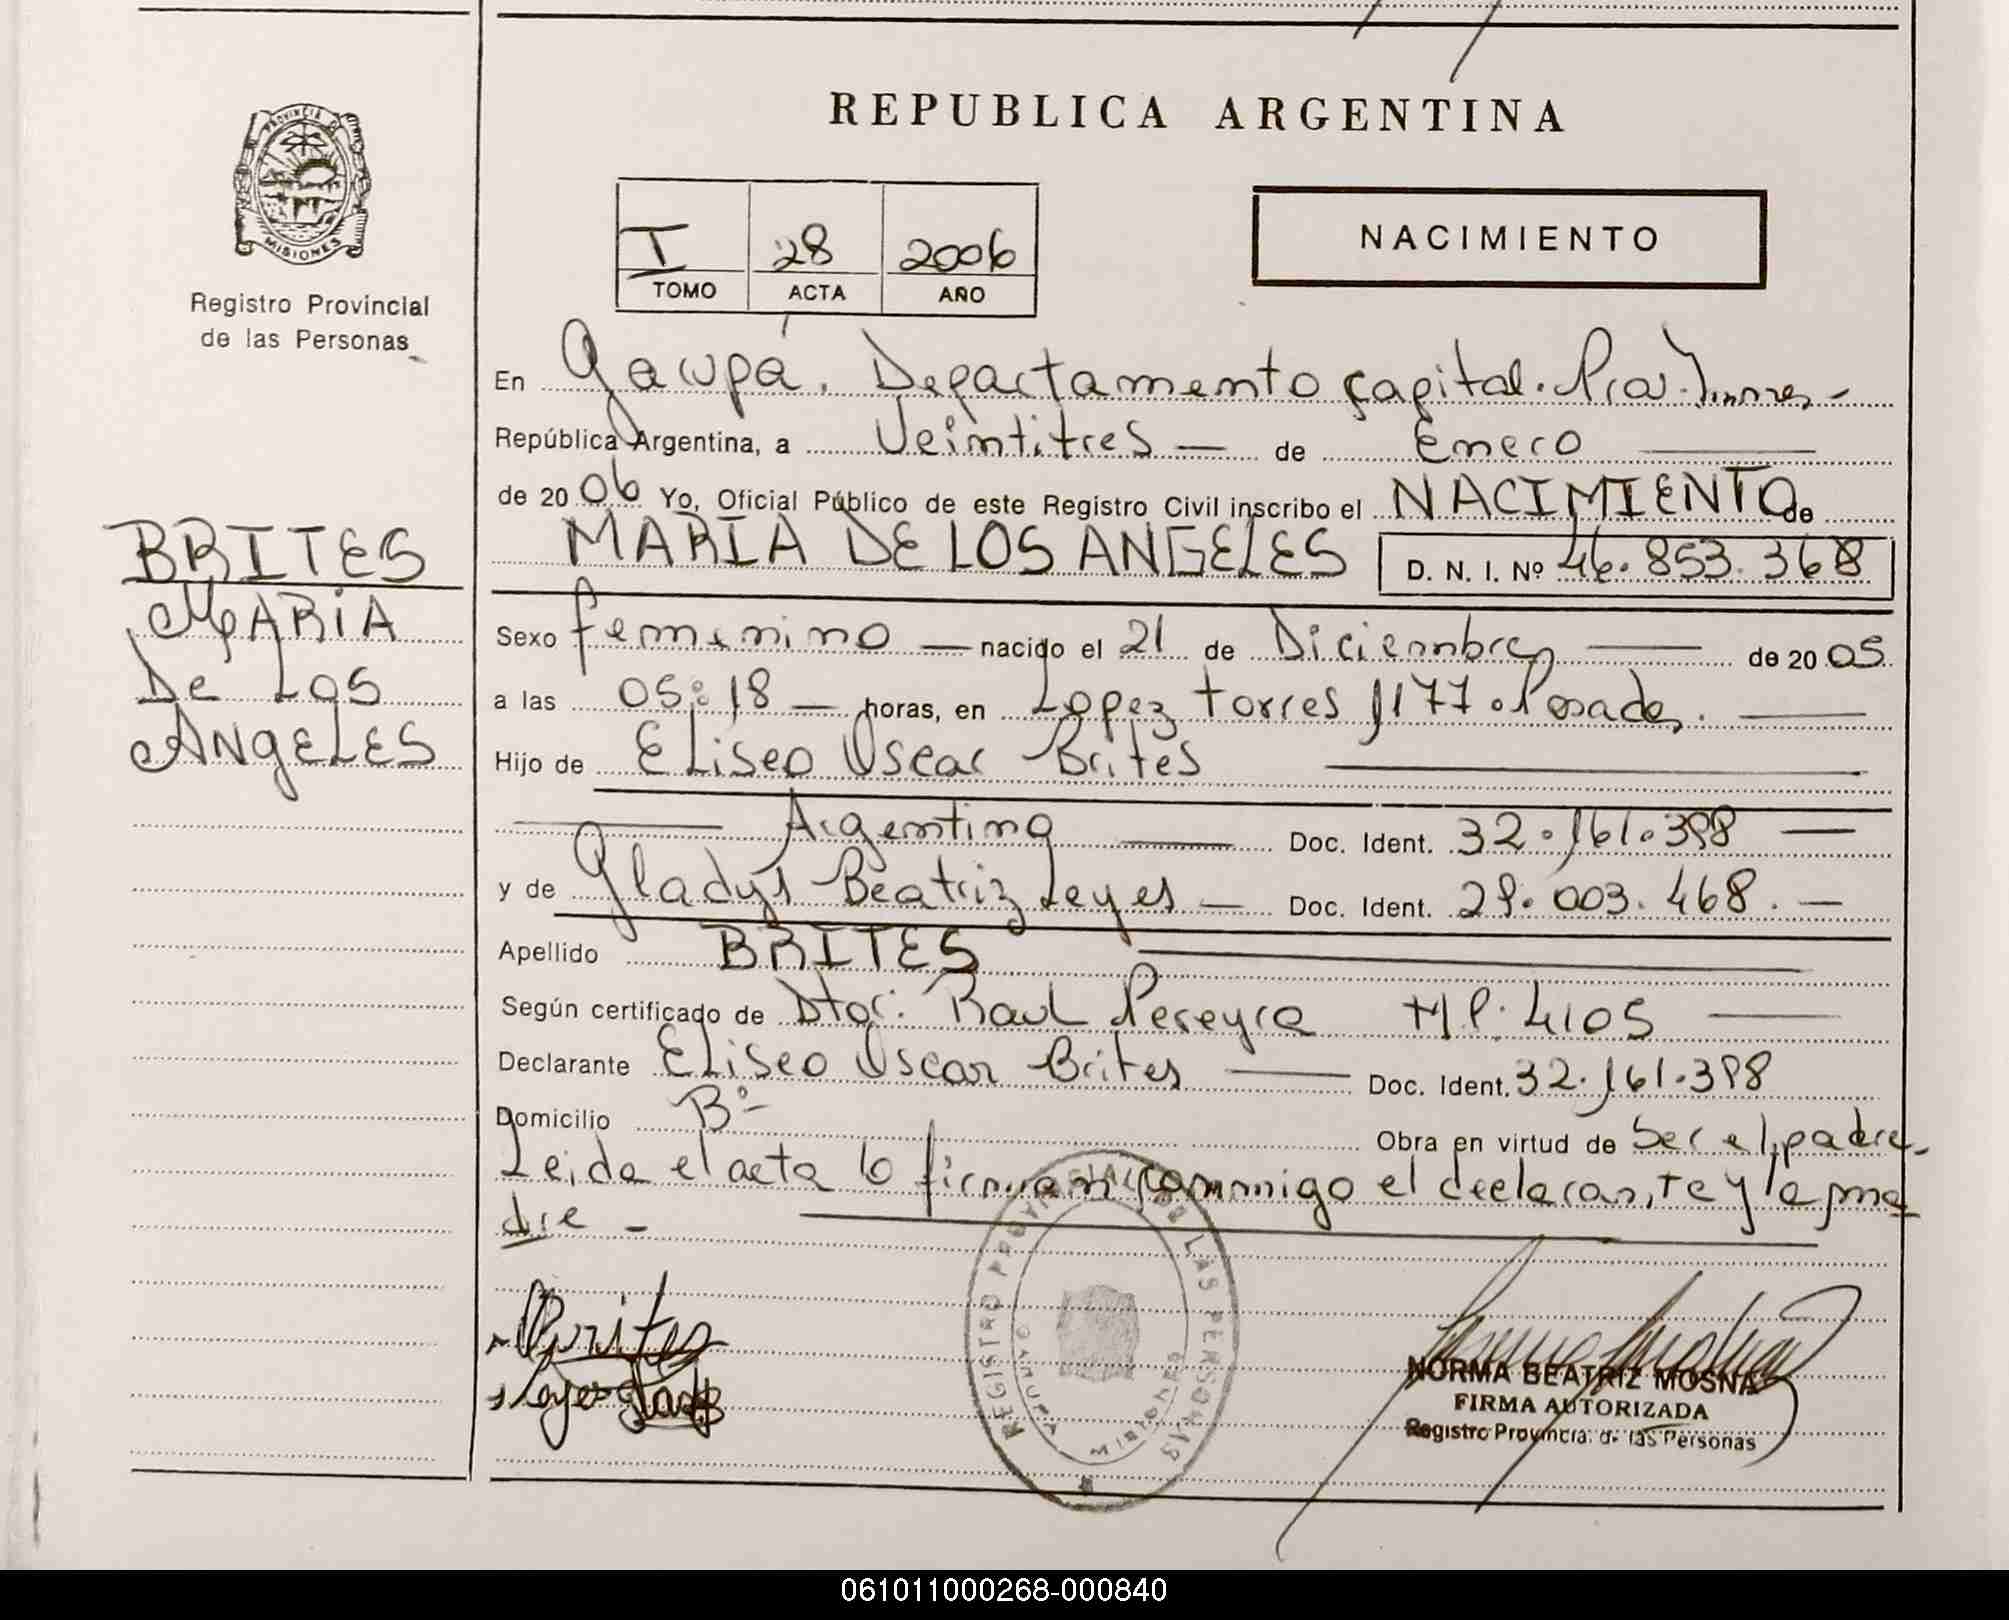 REPUBLICA ARGENTINA
PROVINCIA DE
MISIONES
Registro Provincial
de las Personas
I 28 2006
TOMO ACTA AÑO
NACIMIENTO
En Garupá. Departamento Capital. Prov.
República Argentina, a Veintitres — de Enero —
de 20 06 Yo, Oficial Público de este Registro Civil inscribo el NACIMIENTO de
MARIA DE LOS ANGELES D. N. I. Nº 46.853.368
BRITES
MARIA
De Los
ANgELES
Sexo femenino — nacido el 21 de Diciembre — de 20 05
a las 05:18 — horas, en Lopez Torres 1177. Posadas. —
Hijo de Eliseo Oscar Brites —
— Argentino — Doc. Ident. 32.161.398 —
y de Gladys Beatriz Leyes — Doc. Ident. 29.003.468. —
Apellido BRITES —
Según certificado de Dtor. Raul Pereyra M.P. 4105 —
Declarante Eliseo Oscar Brites — Doc. Ident. 32.161.398
Domicilio Bº- Obra en virtud de ser el padre.
Leida el acta lo firman conmigo el declarante y la ma
dre -
Brites
Leyes
REGISTRO PROVINCIAL DE LAS PERSONAS
MISIONES
NORMA BEATRIZ MOSNA
FIRMA AUTORIZADA
Registro Provincial de las Personas
061011000268-000840